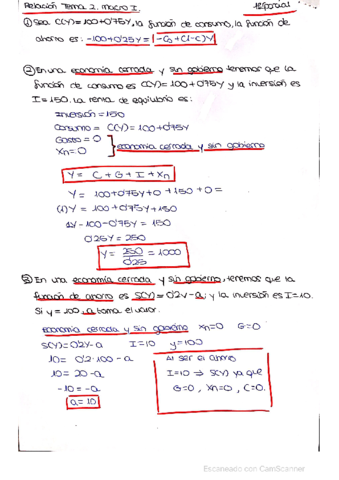 Relación Tema 2. Macro I.
1º Parcial
① Sea C(Y)=100+0'75Y, la función de consumo, la función de
ahorro es: -100+0'25Y = -C₀+(1-C)Y
② En una economía cerrada y sin gobierno tenemos que la
función de consumo es C(Y)=100+0'75Y y la inversión es
I=150. La renta de equilibrio es:
Inversión = 150
Consumo = C(Y)=100+0'75Y
Gasto = 0
Xn = 0
economía cerrada y sin gobierno
Y = C + G + I + Xn
Y = 100+0'75Y+0+150+0=
(1)Y = 100+0'75Y+150
1Y-100-0'75Y = 150
0'25Y = 250
Y = 250/0'25 = 1000
③ En una economía cerrada y sin gobierno, tenemos que la
función de ahorro es S(Y)=0'2Y-a, y la inversión es I=10.
Si y=100, a toma el valor.
economía cerrada y sin gobierno Xn=0 G=0
S(Y)=0'2Y-a I=10 y=100
10 = 0'2·100-a
10 = 20-a
-10 = -a
a = 10
Al ser el ahorro
I=10 ⇒ S(Y) ya que
G=0, Xn=0, C=0.
Escaneado con CamScanner